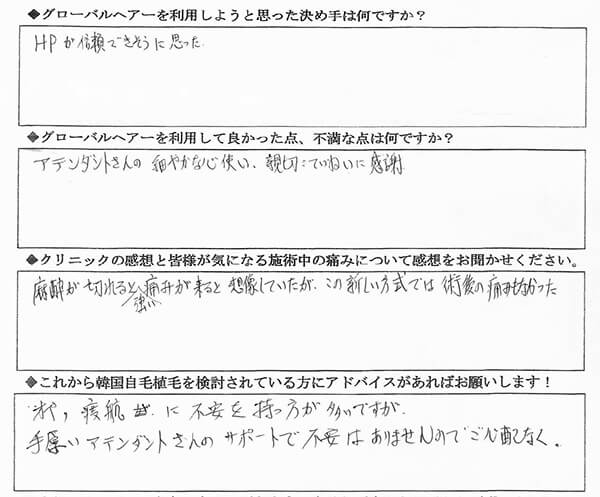 ◆グローバルヘアーを利用しようと思った決め手は何ですか？
HPが信頼できそうに思った.
◆グローバルヘアーを利用して良かった点、不満な点は何ですか？
アテンダントさんの細やかな心使い、親切ていねいに感謝
◆クリニックの感想と皆様が気になる施術中の痛みについて感想をお聞かせください。
麻酔が切れると強い痛みが来ると想像していたが、この新しい方式では術後の痛みもなかった
◆これから韓国自毛植毛を検討されている方にアドバイスがあればお願いします！
に不安を持つ方が多いですが
手厚いアテンダントさんのサポートで不安はありませんのでご心配なく。